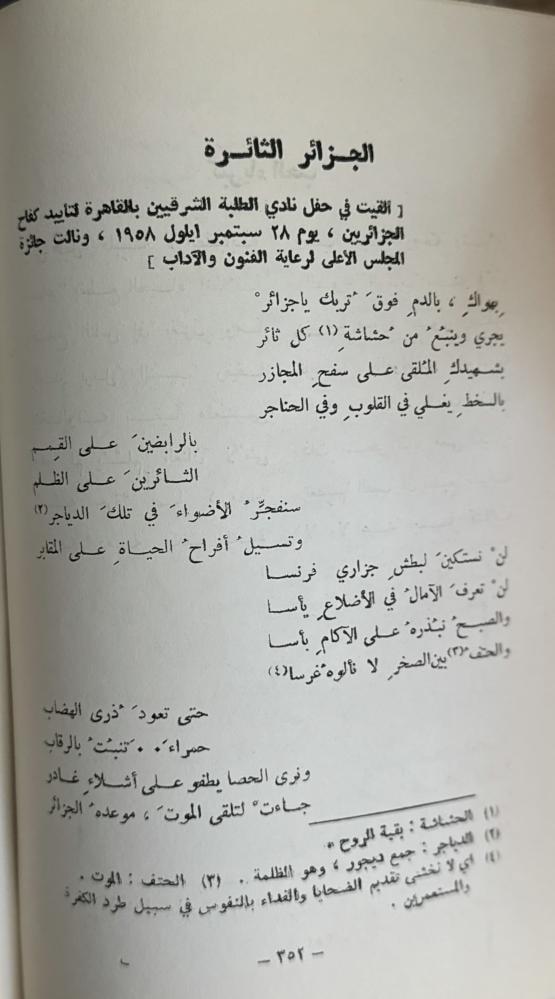 الجزائر الثائرة
[ القيت في حفل نادي الطلبة الشرقيين بالقاهرة لتأييد كفاح
الجزائريين ، يوم ٢٨ سبتمبر ايلول ١٩٥٨ ، ونالت جائزة
المجلس الأعلى لرعاية الفنون والآداب ]
بهواكِ ، بالدمِ فوقَ تُربك ياجزائرْ
يجري وينبعُ من حُشاشةِ (١) كل ثائر
بشهيدكِ المُلقى على سفحِ المجازر
بالسخطِ يغلي في القلوبِ وفي الحناجر
بالرابضينَ على القمم
الثائرينَ على الظلم
سنفجِّرُ الأضواءَ في تلكَ الدياجر (٢)
وتسيلُ أفراحُ الحياةِ على المقابر
لنْ نستكينَ لبطشِ جزاري فرنسا
لنْ تعرفَ الآمالُ في الأضلاعِ يأسا
والصبحُ نبْذره على الآكامِ بأسا
والحتفُ (٣) بين الصخرِ لا نألوهُ غرسا (٤)
حتى تعودَ ذُرى الهضاب
حمراءَ . . تنبتُ بالرقاب
ونرى الحصا يطفو على أشلاءِ غادر
جاءتْ لتلقى الموتَ ، موعدهُ الجزائر
(١) الحشاشة : بقية الروح .
(٢) الدياجر : جمع ديجور ، وهو الظلمة . (٣) الحتف : الموت .
(٤) اي لا نخشى تقديم الضحايا والفداء بالنفوس في سبيل طرد الكفرة
والمستعمرين .
– ٣٥٢ –